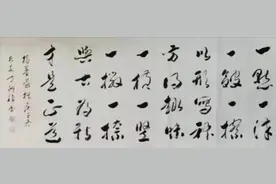 一點一抹
一皴一擦
以形寫神
方得趣味
一橫一竪
一撇一捺
與古為新
才是正道